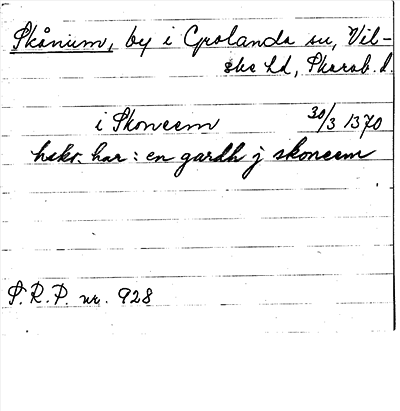 Skånum, by i Grolanda sn, Vil-
ske hd, Skarab. l.
i Skoneem 30/3 1370
hskr. har: en gardh j skoneem
S.R.P. nr. 928